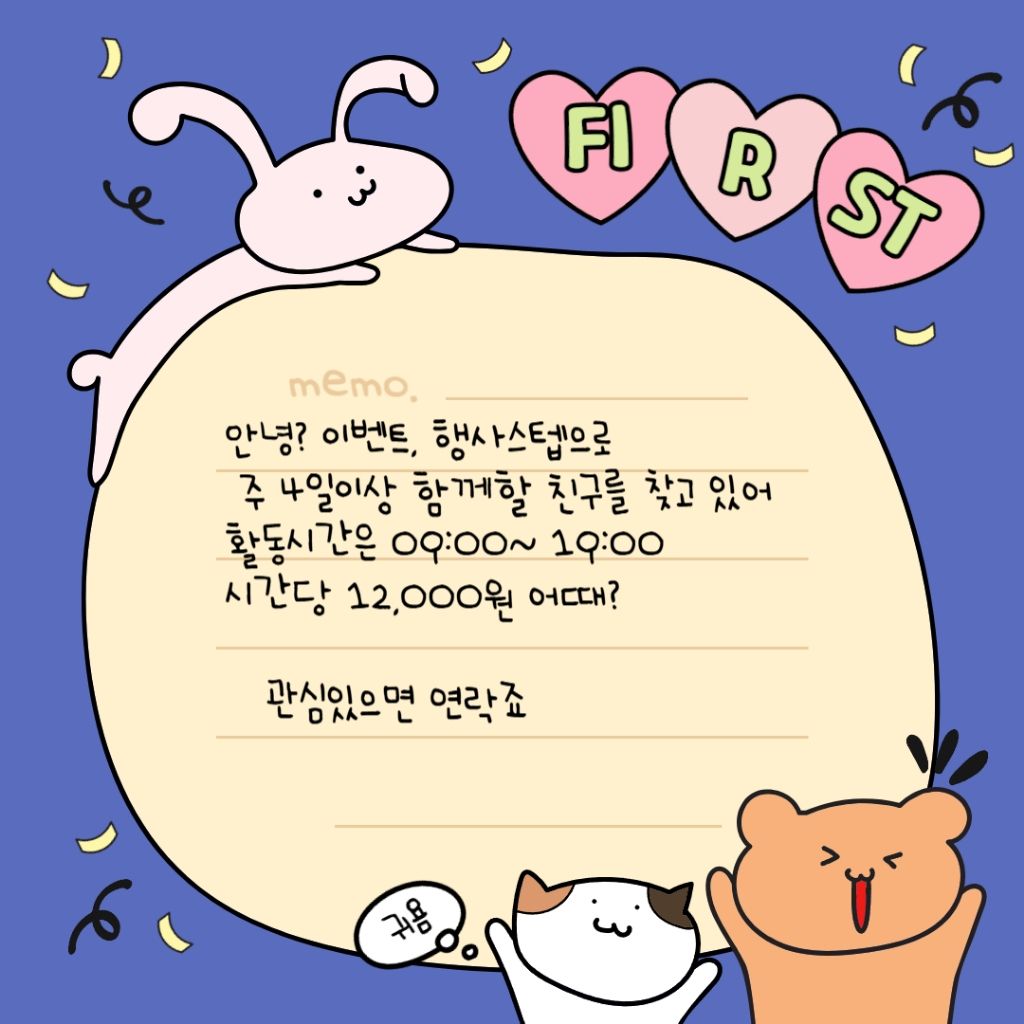 FIRST
memo.
안녕? 이벤트, 행사스텝으로
주 4일이상 함께할 친구를 찾고 있어
활동시간은 09:00~ 19:00
시간당 12,000원 어때?
관심있으면 연락죠
귀욤